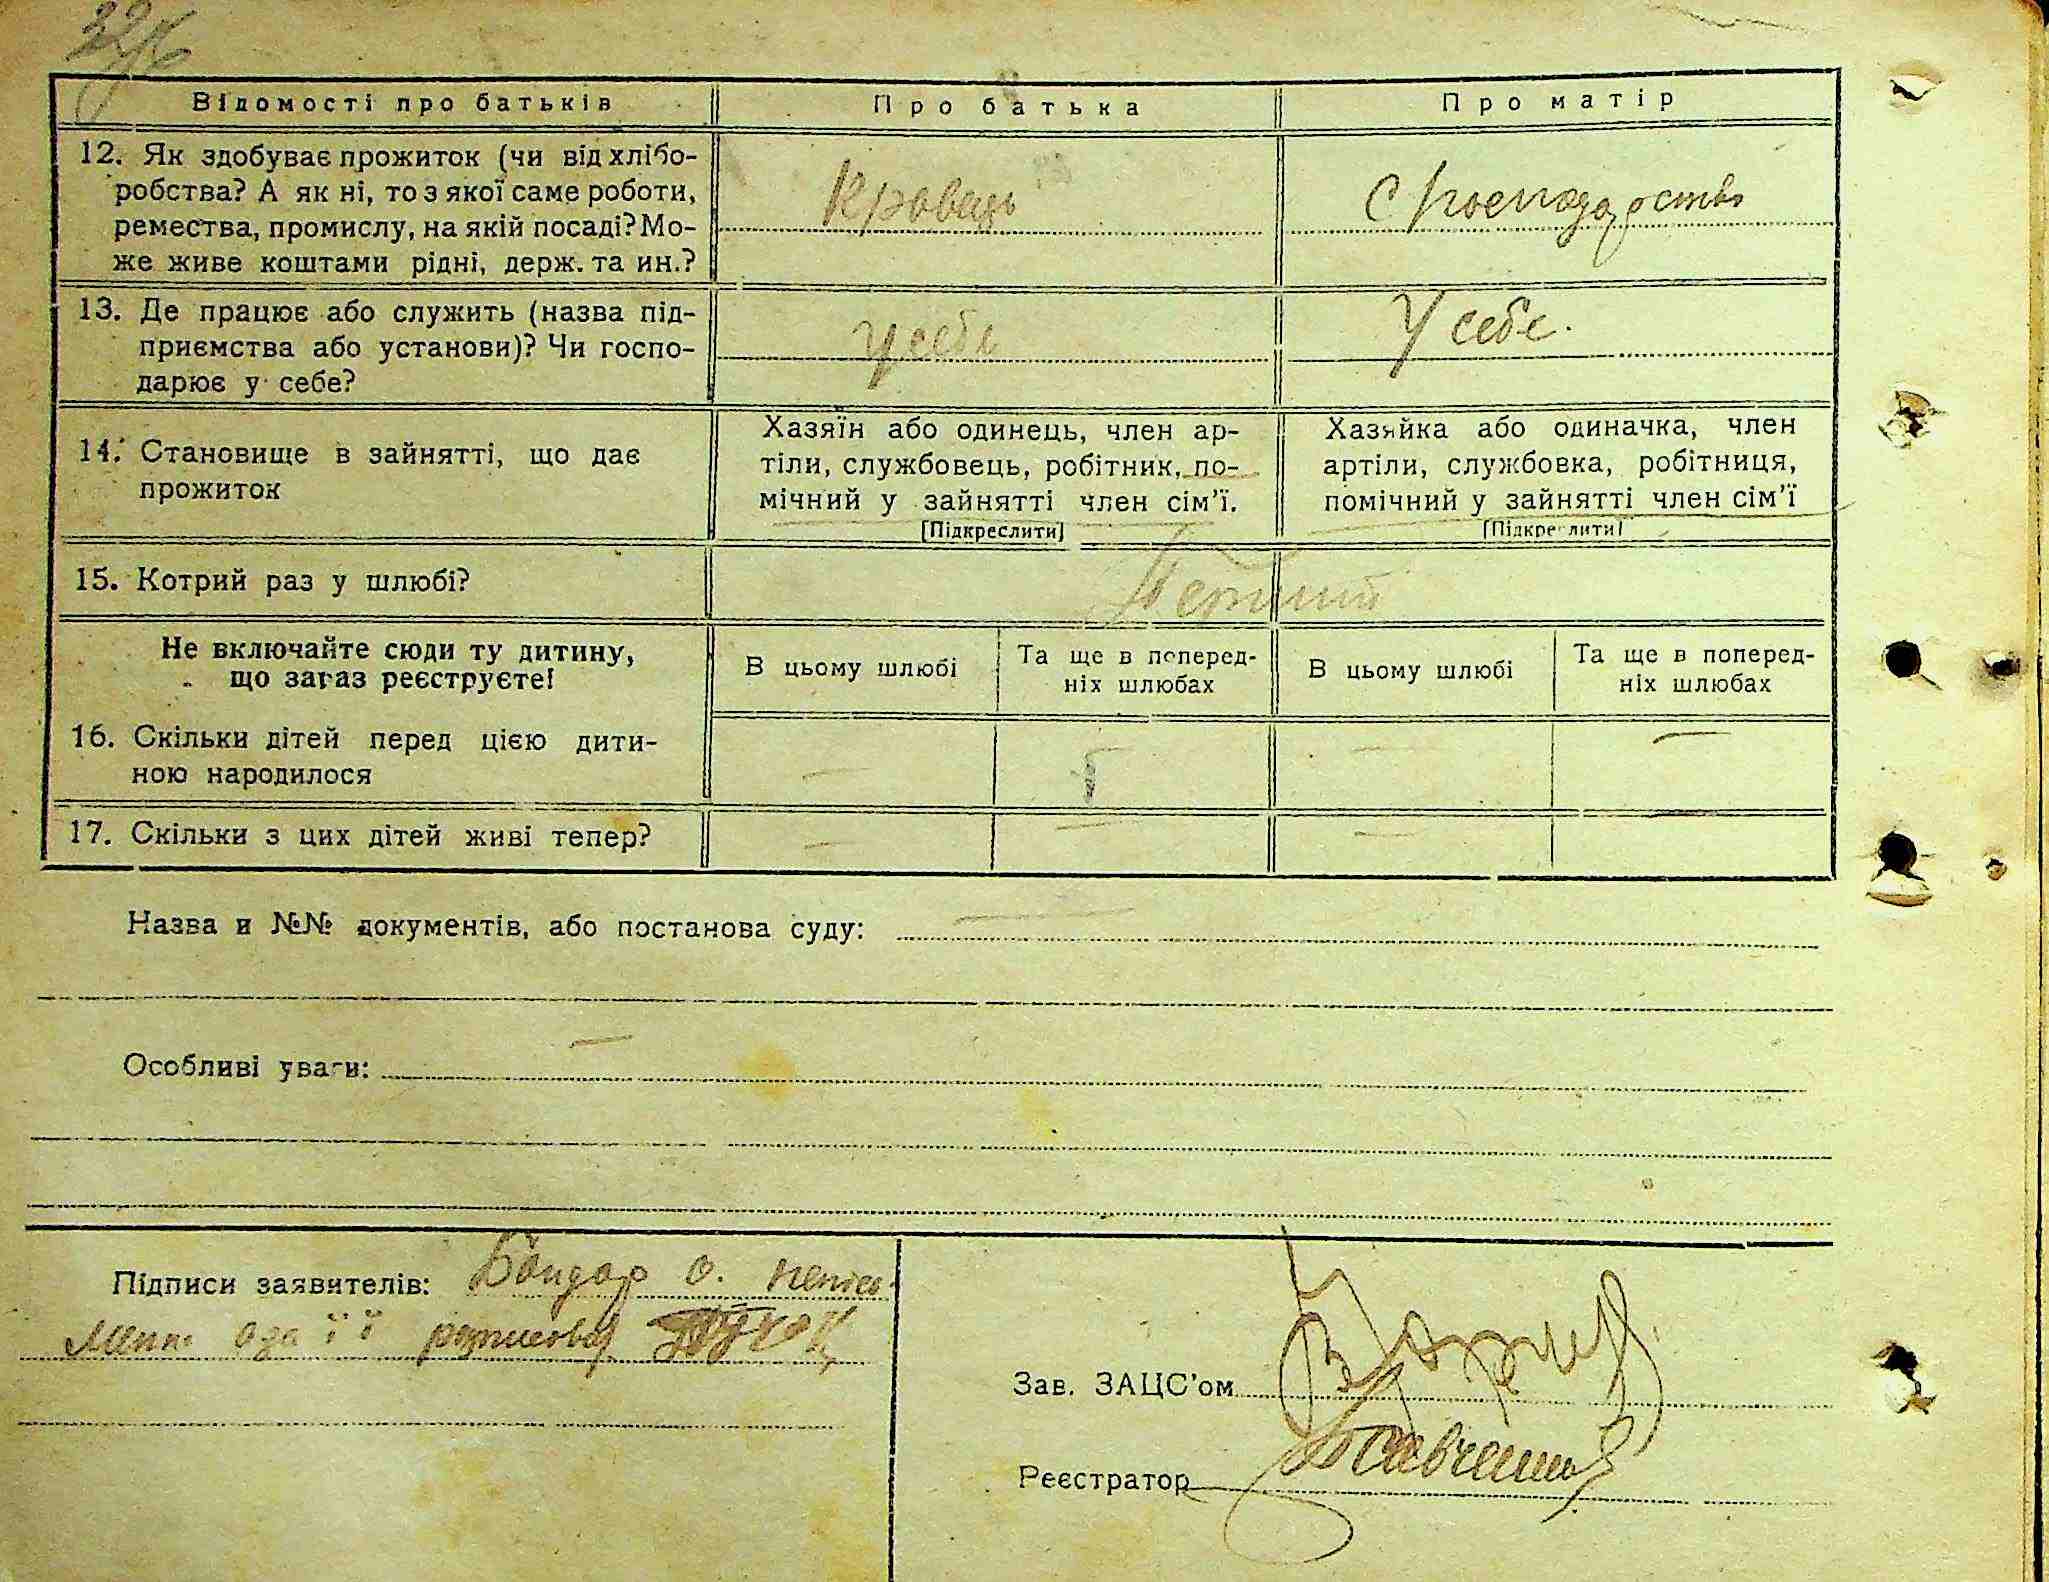 Відомості про батьків
Про батька
Про матір
12. Як здобуває прожиток (чи від хлібо-
робства? А як ні, то з якої саме роботи,
ремества, промислу, на якій посаді? Мо-
же живе коштами рідні, держ. та ин.?
Кравець
с господарства
13. Де працює або служить (назва під-
приємства або установи)? Чи госпо-
дарює у себе?
у себе
У себе.
14. Становище в зайнятті, що дає
прожиток
Хазяїн або одинець, член ар-
тіли, службовець, робітник, по-
мічний у зайнятті член сім’ї.
[Підкреслити]
Хазяйка або одиначка, член
артіли, службовка, робітниця,
помічний у зайнятті член сім’ї
[Підкреслити]
15. Котрий раз у шлюбі?
Перший
Не включайте сюди ту дитину,
що зараз реєструєте!
В цьому шлюбі
Та ще в поперед-
ніх шлюбах
В цьому шлюбі
Та ще в поперед-
ніх шлюбах
16. Скільки дітей перед цією дити-
ною народилося
— — —
17. Скільки з цих дітей живі тепер?
— — — —
Назва и №№ документів, або постанова суду: —
Особливі уваги: —
Підписи заявителів: Бондар о. непись
менна за її
Зав. ЗАЦС’ом
Реєстратор